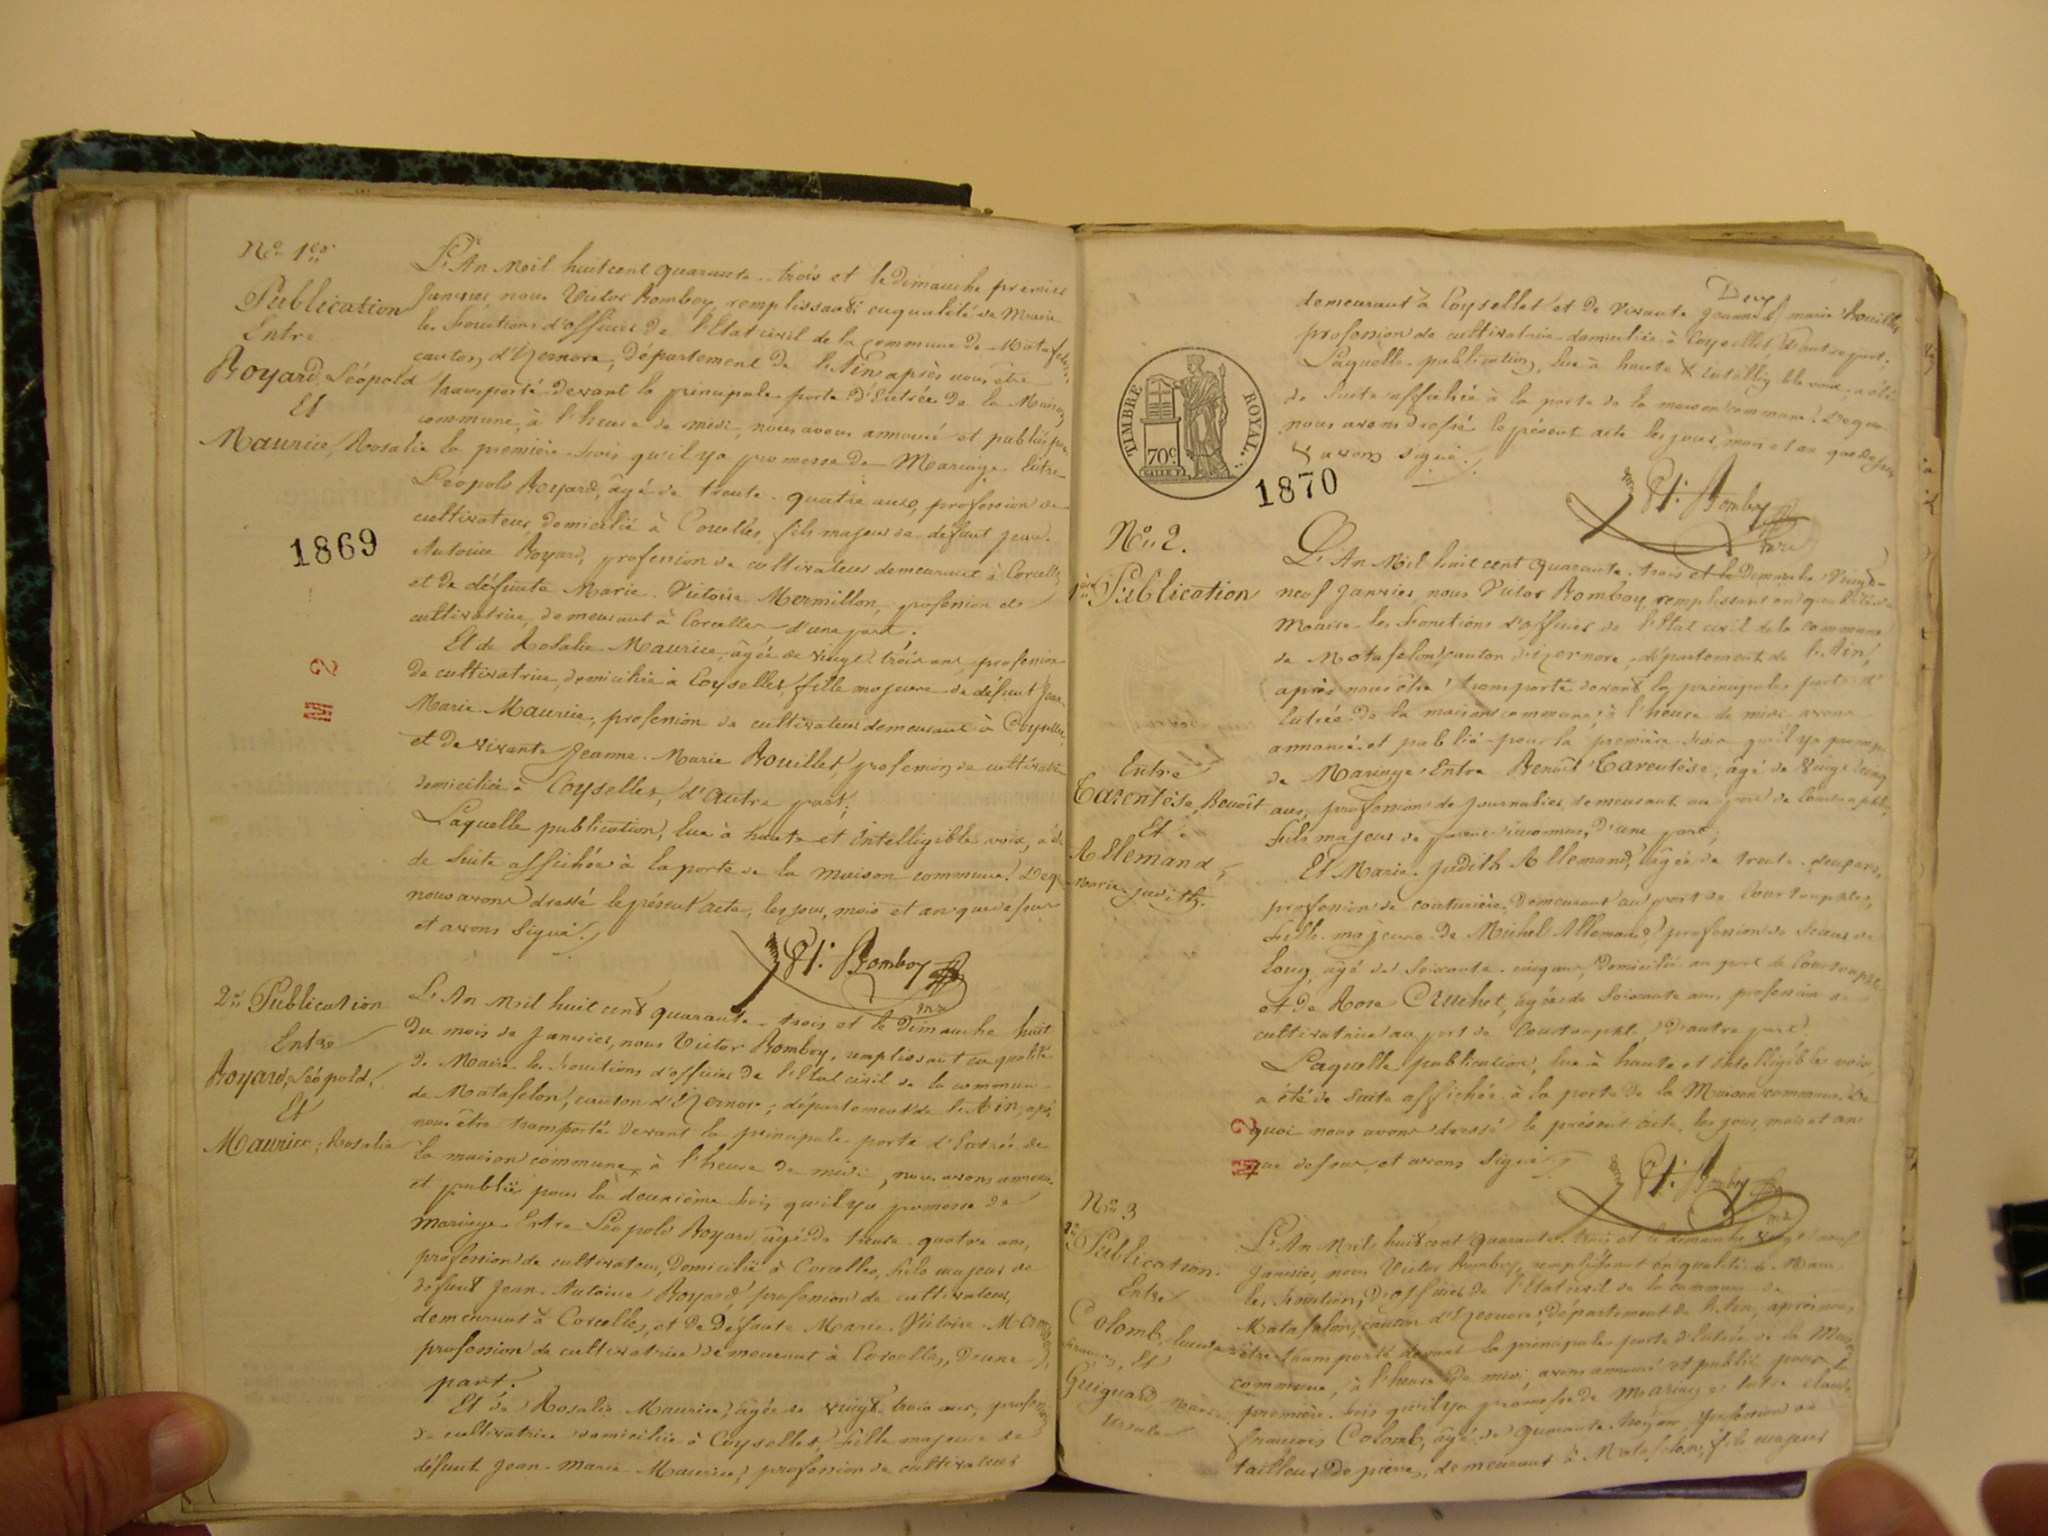 No 1er
Publication
Entre
Boyard, Léopold
Et
Maurice, Rosalie
1869
M 2
L'An Mil huit cent quarante-trois et le dimanche premier
Janvier, nous Victor Bomboy, remplissant en qualité de Maire
les fonctions d'officier de l'Etat civil de la commune de Matafelon,
canton d'Izernore, département de l'Ain, après nous être
transporté devant la principale porte d'Entrée de la Maison
commune, à l'heure de midi, nous avons annoncé et publié pour
la première fois qu'il y a promesse de Mariage. Entre
Léopold Boyard, âgé de trente-quatre ans, profession de
cultivateur, domicilié à Corcelles, fils majeur de défunt Jean-
Antoine Boyard, profession de cultivateur demeurant à Corcelles
et de défunte Marie-Victoire Mermillon, profession de
cultivatrice, demeurant à Corcelles, d'une part.
Et de Rosalie Maurice, âgée de vingt-trois ans, profession
de cultivatrice, domiciliée à Coysellet, fille majeure de défunt Jean-
Marie Maurice, profession de cultivateur demeurant à Coysellet,
et de vivante Jeanne-Marie Bouillet, profession de cultivatrice
domiciliée à Coysellet, d'autre part;
Laquelle publication, lue à haute et intelligible voix, a été
de suite affichée à la porte de la maison commune. De quoi
nous avons dressé le présent acte, les jour, mois et an que dessus
et avons signé.
Vr. Bomboy
2e Publication
Entre
Boyard, Léopold,
Et
Maurice, Rosalie
L'An Mil huit cent quarante-trois et le dimanche huit
du mois de Janvier, nous Victor Bomboy, remplissant en qualité
de Maire les fonctions d'officier de l'Etat civil de la commune
de Matafelon, canton d'Izernore, département de l'Ain, après
nous être transporté devant la principale porte d'Entrée de
la maison commune, à l'heure de midi, nous avons annoncé
et publié pour la deuxième fois qu'il y a promesse de
mariage Entre Léopold Boyard, âgé de trente-quatre ans,
profession de cultivateur, domicilié à Corcelles, fils majeur de
défunt Jean-Antoine Boyard, profession de cultivateur,
demeurant à Corcelles, et de défunte Marie-Victoire Mermillon,
profession de cultivatrice demeurant à Corcelles, d'une
part.
Et de Rosalie Maurice, âgée de vingt-trois ans, profession
de cultivatrice domiciliée à Coysellet, fille majeure de
défunt Jean-Marie Maurice, profession de cultivateur
Deux
demeurant à Coysellet et de vivante Jeanne-marie Bouillet
profession de cultivatrice domiciliée à Coysellet, d'autre part.
Laquelle publication, lue à haute & intelligible voix, a été
de suite affichée à la porte de la maison commune. De quoi
nous avons dressé le présent acte les jour, mois et an que dessus
& avons signé.
TIMBRE ROYAL
70c
1870
Vr. Bomboy
No 2.
1ère Publication
Entre
Tarentèse, Benoît
Et
Allemand,
Marie-Judith.
L'An Mil huit cent quarante-trois et le Dimanche vingt-
neuf Janvier, nous Victor Bomboy, remplissant en qualité de
Maire les fonctions d'officier de l'Etat civil de la commune
de Matafelon, canton d'Izernore, département de l'Ain,
après nous être transporté devant la principale porte d'
Entrée de la maison commune, à l'heure de midi avons
annoncé et publié pour la première fois qu'il y a promesse
de Mariage Entre Benoît Tarentèse, âgé de vingt-cinq
ans, profession de journalier, demeurant au port de
fils majeur de parens inconnus, d'une part;
Et Marie-Judith Allemand, âgée de trente-deux ans,
profession de couturière, demeurant au port de
fille majeure de Michel Allemand, profession de scieur de
long, âgé de soixante-cinq ans, domicilié au port de
et de Rose Cruchet, âgée de soixante ans, profession de
cultivatrice au port de d'autre part.
Laquelle publication, lue à haute et intelligible voix
a été de suite affichée à la porte de la Maison commune. De
quoi nous avons dressé le présent acte, les jour, mois et an
que dessus, et avons signé.
M 2
Vr. Bomboy
No 3
Publication
Entre
Colomb, Claude
François, Et
Guignard, Marie
Ursule
L'An Mil huit cent quarante-trois et le dimanche vingt-neuf
Janvier, nous Victor Bomboy, remplissant en qualité de Maire
les fonctions d'officier de l'Etat civil de la commune de
Matafelon, canton d'Izernore, département de l'Ain, après nous
être transporté devant la principale porte d'Entrée de la Maison
commune, à l'heure de midi, avons annoncé et publié pour la
première fois qu'il y a promesse de Mariage entre Claude
françois Colomb, âgé de quarante ans, profession de
tailleur de pierre, demeurant à Matafelon, fils majeur